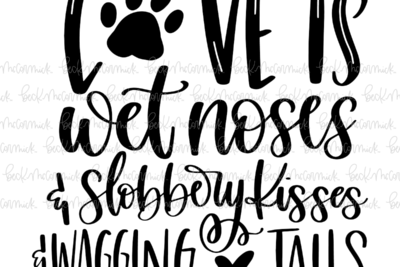 LOVE IS
wet noses
& Slobbery Kisses
& WAGGING TAILS